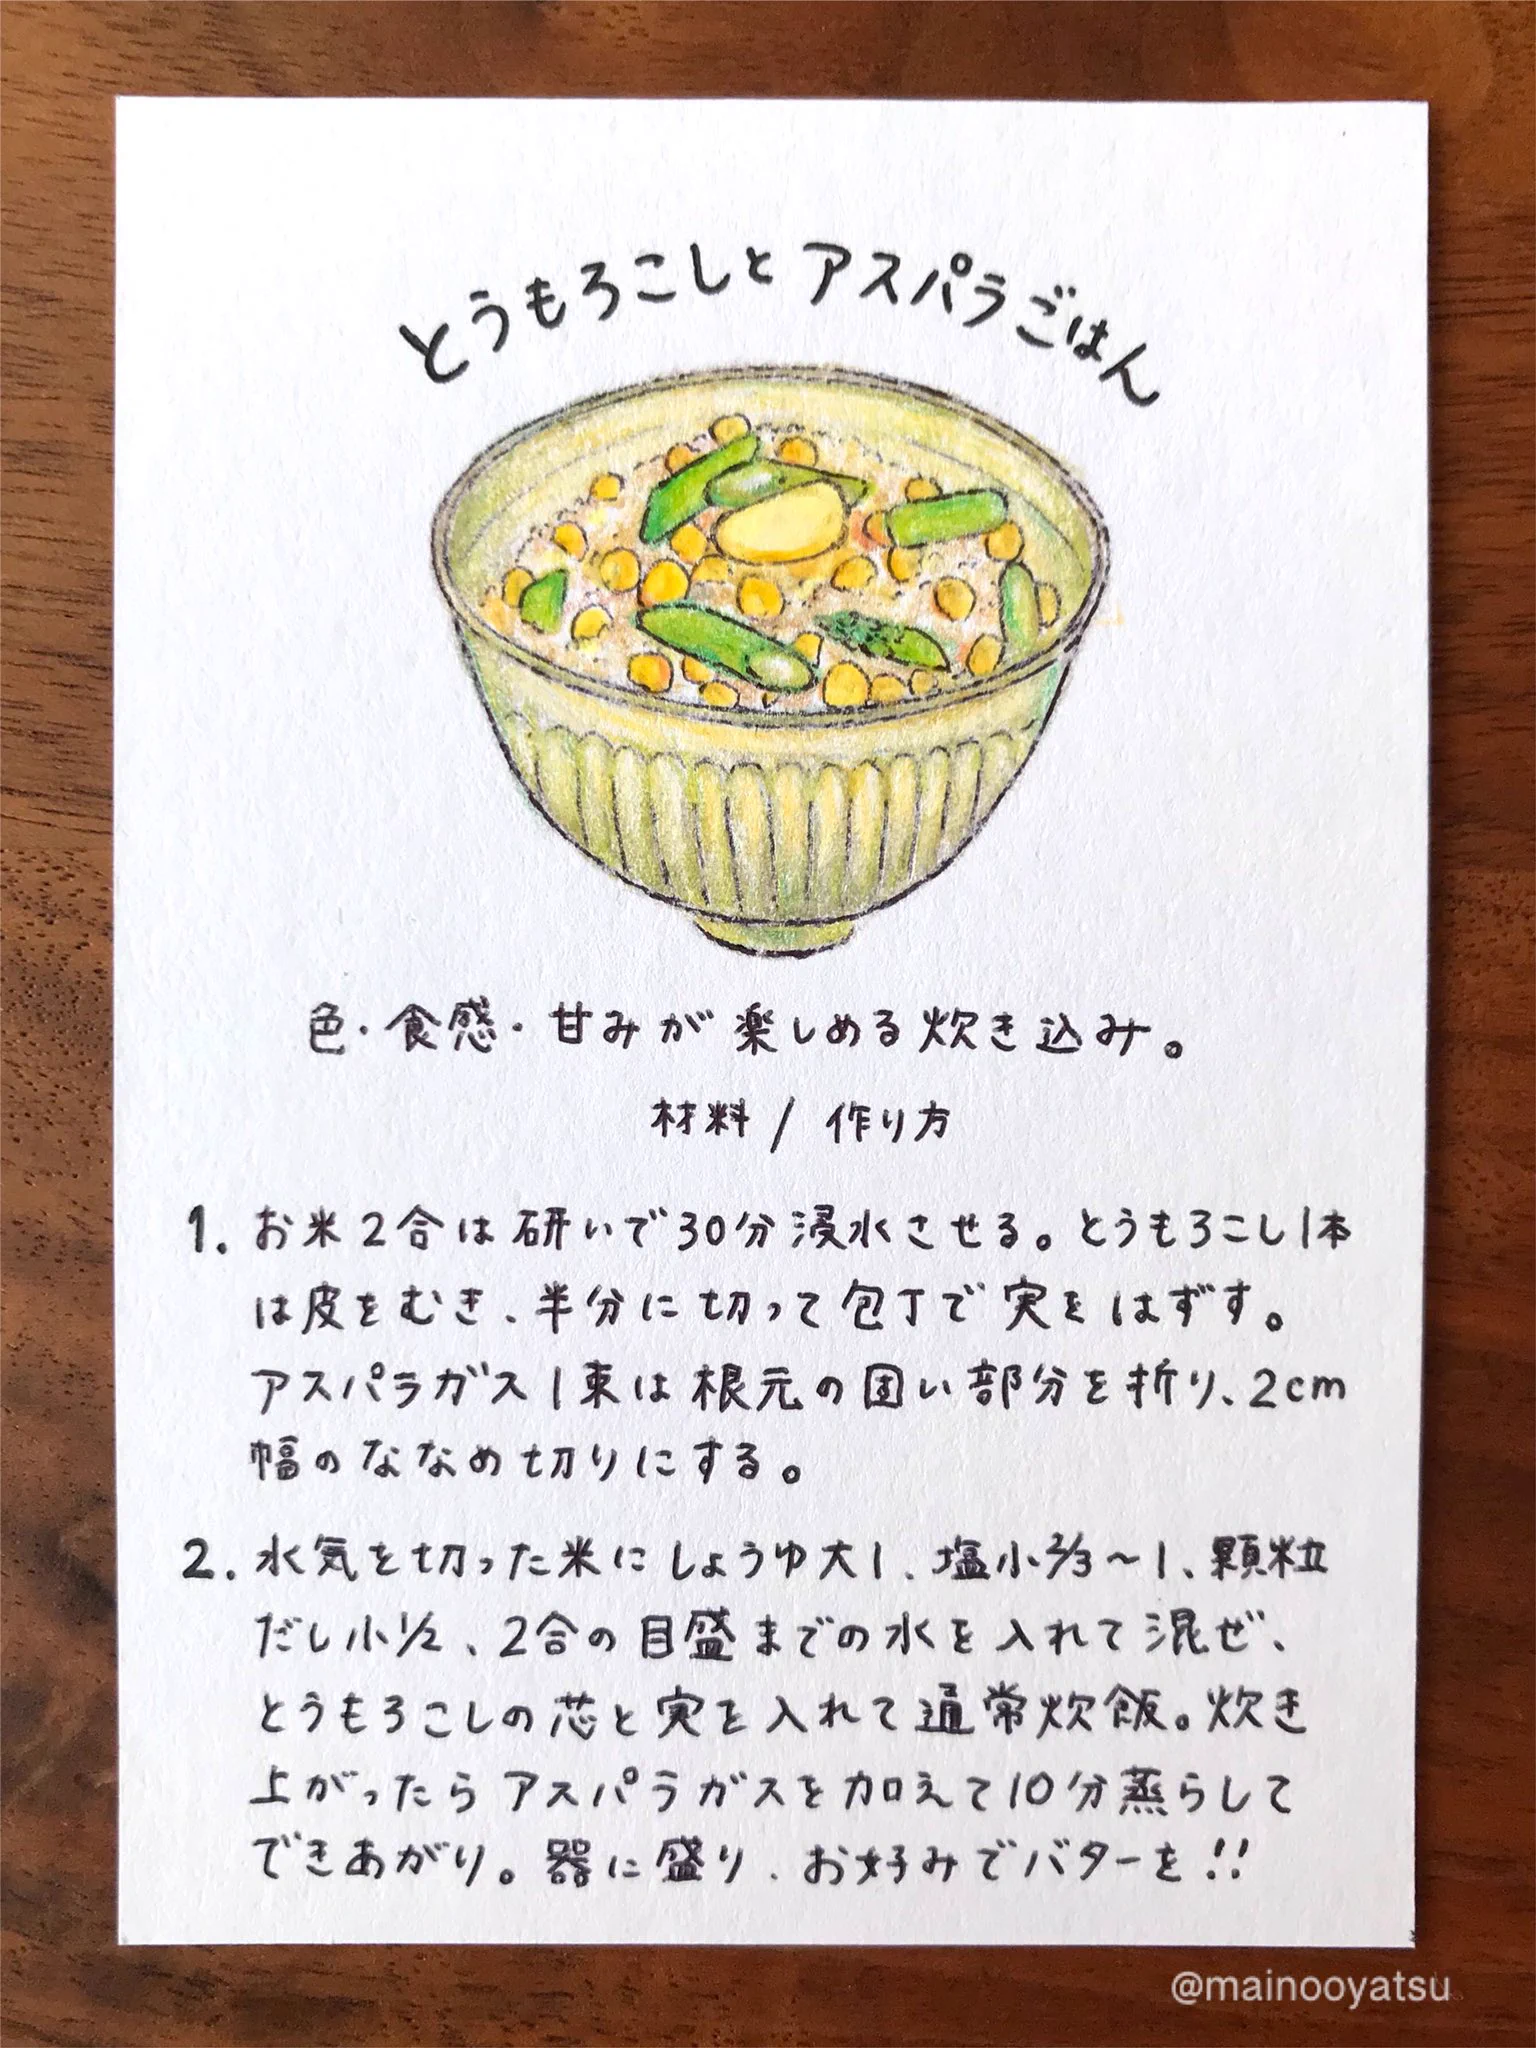 とうもろこしとアスパラごはん
色・食感・甘みが楽しめる炊き込み。
材料/作り方
1. お米2合は研いで30分浸水させる。とうもろこし1本
は皮をむき、半分に切って包丁で実をはずす。
アスパラガス1束は根元の固い部分を折り、2cm
幅のななめ切りにする。
2. 水気を切った米にしょうゆ大1、塩小2/3〜1、顆粒
だし小1/2、2合の目盛までの水を入れて混ぜ、
とうもろこしの芯と実を入れて通常炊飯。炊き
上がったらアスパラガスを加えて10分蒸らして
できあがり。器に盛り、お好みでバターを!!
@mainooyatsu